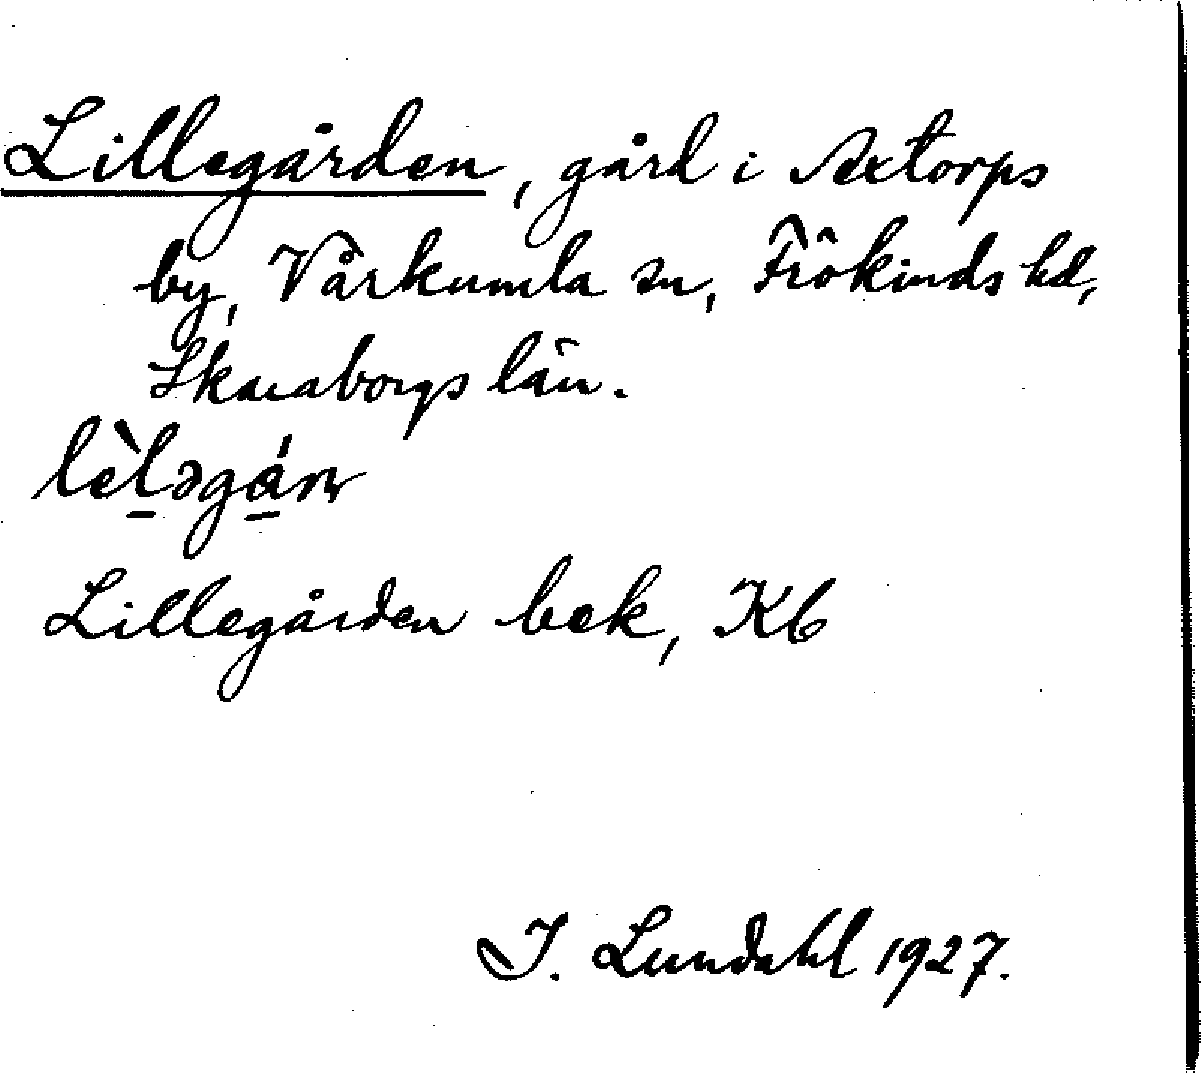 Lillegården, gård i Axtorps
by, Vårkumla sn, Frökinds hd,
Skaraborgs län.
lèləgá̱rn
Lillegården bek, Kb
I. Lundahl 1927.